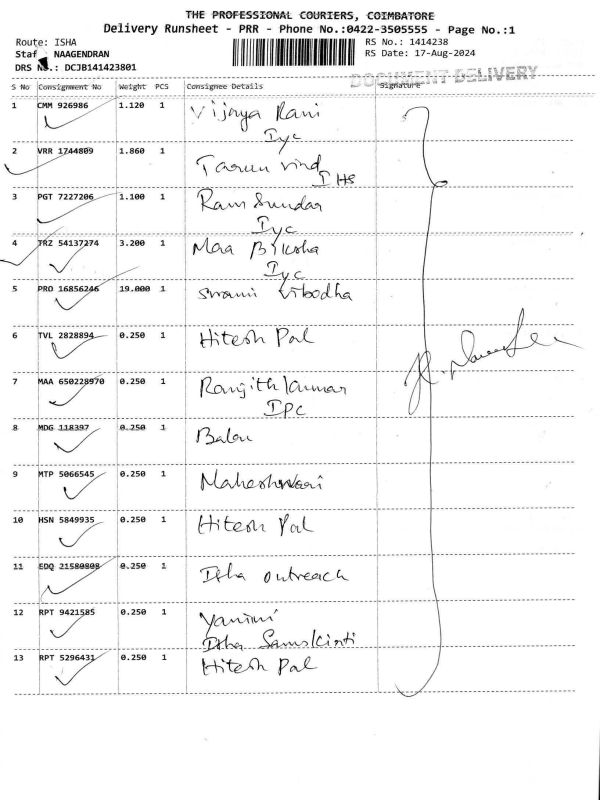 THE PROFESSIONAL COURIERS, COIMBATORE
Delivery Runsheet - PRR - Phone No.:0422-3505555 - Page No.:1
Route: ISHA
RS No.: 1414238
Staf NAAGENDRAN
RS Date: 17-Aug-2024
DRS No.: DCJB141423801
DOCUMENT DELIVERY
S No Consignment No Weight PCS Consignee Details Signature
1 CMM 926986 1.120 1 Vijaya Rani
Iyc
2 VRR 1744809 1.860 1 Tarun vind
I HS
3 PGT 7227206 1.100 1 Ram Sundar
Iyc
4 TRZ 54137274 3.200 1 Maa Biksha
Iyc
5 PRO 16856246 19.000 1 Swami Vibodha
6 TVL 2828894 0.250 1 Hitesh Pal
7 MAA 650228970 0.250 1 Ranjith Kumar
IPC
8 MDG 118397 0.250 1 Balu
9 MTP 5066545 0.250 1 Maheshwari
10 HSN 5849935 0.250 1 Hitesh Pal
11 EDQ 21580808 0.250 1 Isha outreach
12 RPT 9421585 0.250 1 Yamini
Isha Samskriti
13 RPT 5296431 0.250 1 Hitesh Pal